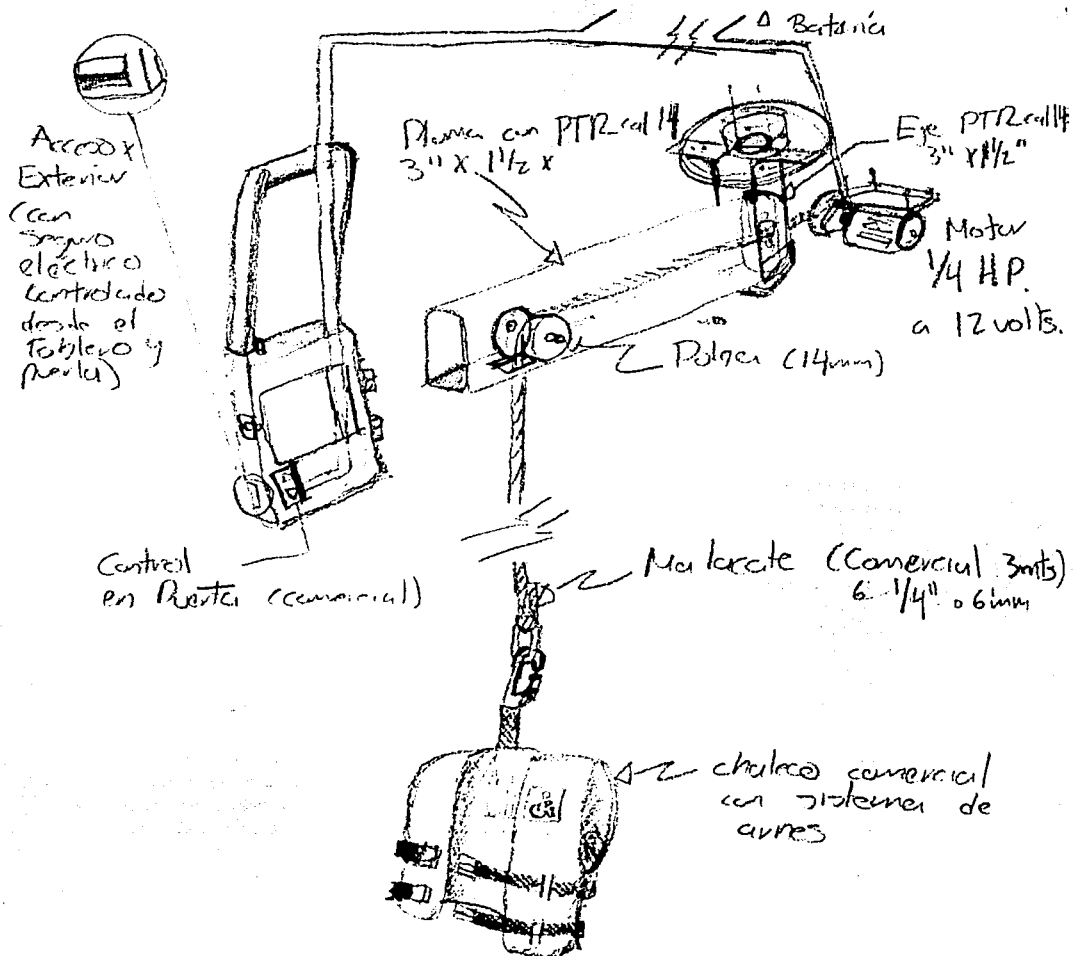 a Batería
Acceso x
Exterior
(con
seguro
eléctrico
controlado
desde el
Tablero y
puerta)
Pluma con PTR cal 14
3" x 1 1/2 x
Eje PTR cal 14
3" x 1 1/2"
Motor
1/4 HP.
a 12 volts.
Polea (14mm)
Control
en Puerta (comercial)
Malacate (Comercial 3mts)
6 1/4" o 6mm
chaleco comercial
con sistema de
arnes